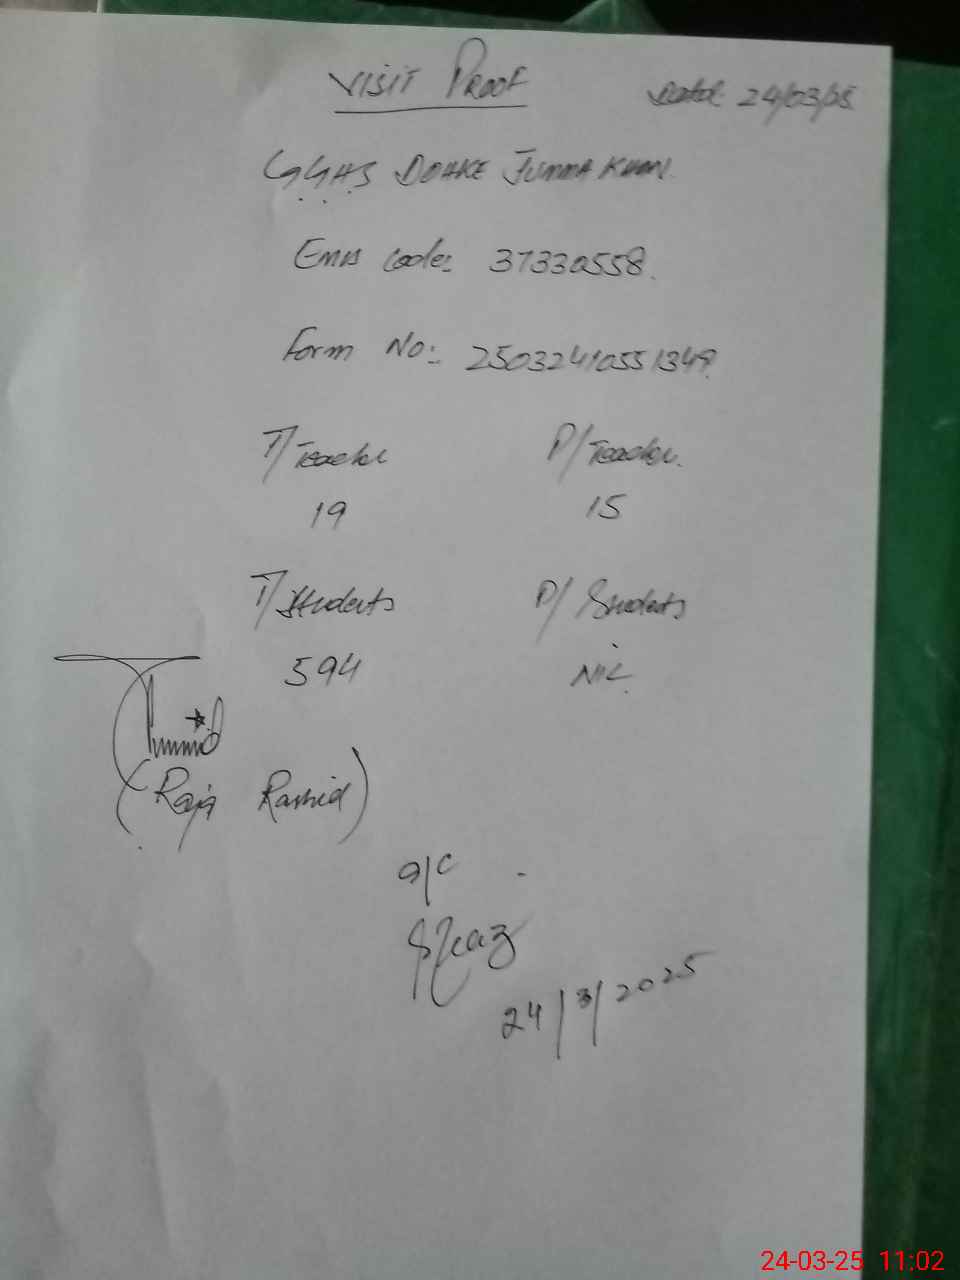 VISIT PROOF
Dated 24/03/25
GGHS DOHKE JUMMA KHAN.
Emis code: 37330558.
Form No:- 25032410551349.
T/Teacher P/Teacher.
19 15
T/Students P/Students
594 NIL.
(Raja Rashid)
24/3/2025
24-03-25 11:02